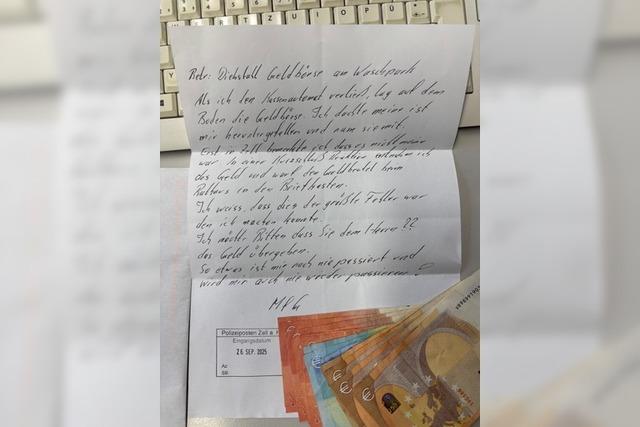 T Z U I O P Ü
Betr: Diebstall Geldbörse am Waschpark
Als ich den Kassenautomat verließ, lag auf dem
Boden die Geldbörse. Ich dachte meine ist
mir heruntergefallen und nam sie mit.
Erst in Zell bemerkte ich das es nicht meine
war. In einer Kurzschluß Reaktion entnahm ich
das Geld und warf den Geldbeutel beim
Rathaus in den Briefkasten.
Ich weiss, dass dies der größte Fehler war
den ich machen konnte.
Ich möchte Bitten dass Sie dem Herrn ??
das Geld übergeben.
So etwas ist mir noch nie passiert und
wird mir auch nie wieder passieren !
MfG
Polizeiposten Zell a. H
Eingangsdatum
26 SEP. 2025
Az:
SB: